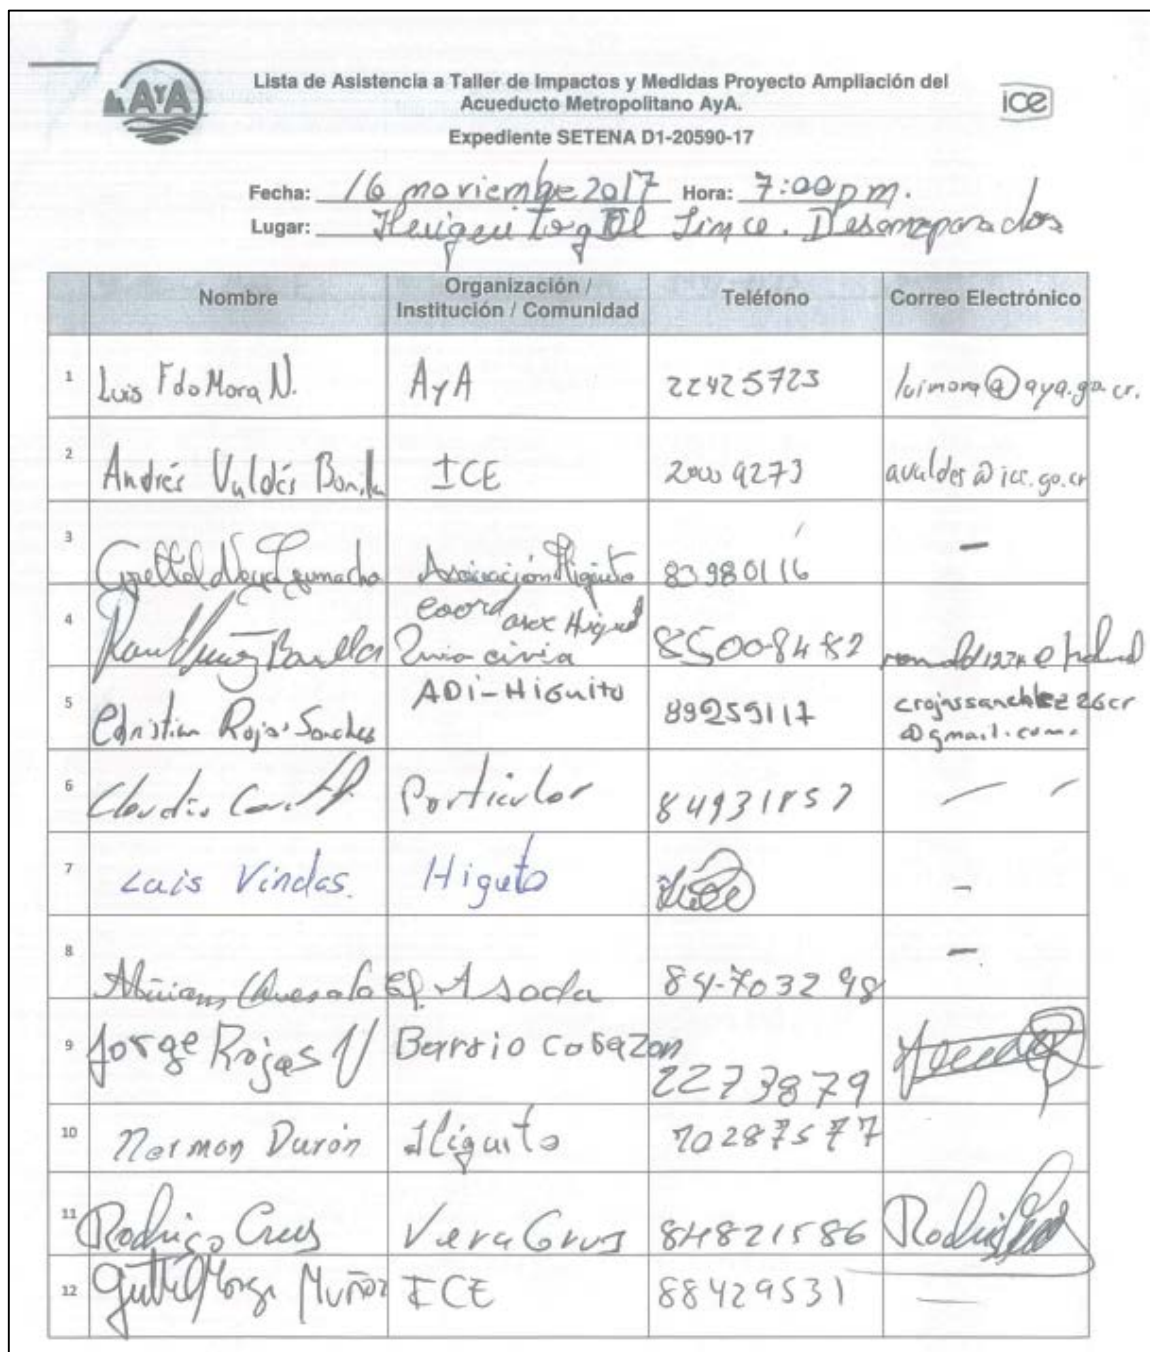 AYA
Lista de Asistencia a Taller de Impactos y Medidas Proyecto Ampliación del
Acueducto Metropolitano AyA.
ice
Expediente SETENA D1-20590-17
Fecha: 16 noviembre 2017 Hora: 7:00 pm.
Lugar: Desamparados
Nombre Organización / Institución / Comunidad Teléfono Correo Electrónico
1 Luis Fdo Mora N. AyA 22425723 luimora@aya.go.cr.
2 Andrés Valdés Bonilla ICE 2000 9273 avaldes@ice.go.cr
3 Camacho Asociación Higuito 83980116 -
4 coord
8500-8482
5 Christian Rojas Sanches ADI-Higuito 89259117 crojassanchez26cr
@gmail.com
6 Claudio Particular 84931857 - -
7 Luis Vindas. Higuto -
8 Quesada 84-703298 -
9 Jorge Rojas V Barrio Corazon 2273879
10 Durón Higuito 70287577
11 Rodrigo Cruz Vera Gruz 84821586
12 Muñoz ICE 88429531 -